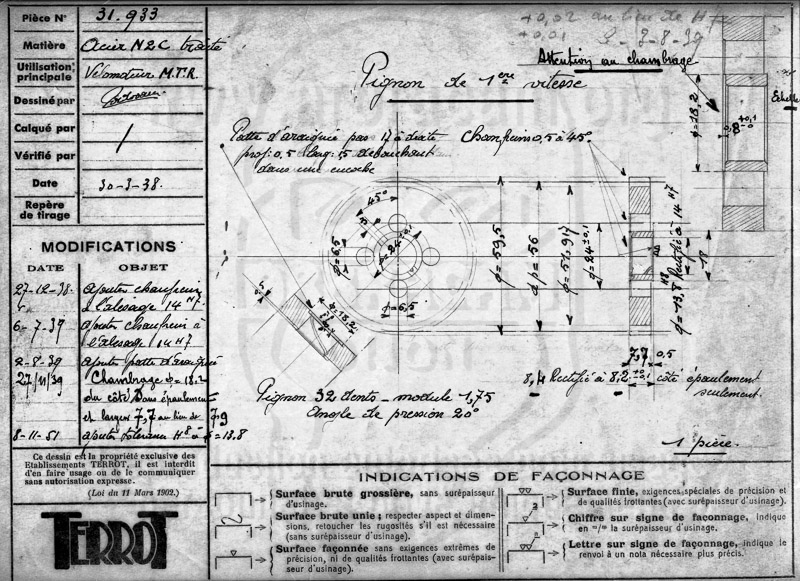 Pièce N° 31.933
Matière Acier N2C traité
Utilisation principale Vélomoteur M.T.R
Dessiné par
Calqué par
Vérifié par
Date 30-3-38.
Repère de tirage
MODIFICATIONS
DATE OBJET
27-12-38. ajouter chanfrein
à l'alésage 14 H7
6-7-39 ajouter chanfrein à
l'alésage 14 H7
2-8-39 ajouter patte d'araignée
27/11/39 Chambrage ø=18.2
du côté sans épaulement
et largeur 7,7 au lieu de 7,9
8-11-51 ajouter tolérance H8 à ø=13.8
Ce dessin est la propriété exclusive des
Etablissements TERROT, il est interdit
d'en faire usage ou de le communiquer
sans autorisation expresse.
(Loi du 11 Mars 1902.)
TERROT
+0,02 au lieu de H7
+0,01
2-8-39
Attention au chambrage
Pignon de 1ère vitesse
Echelle
Patte d'araignée pas 17 à droite
prof: 0,5 larg: 1,5 débouchant
dans une encoche
Chanfreins 0,5 à 45°
ø=18,2
0,8 +0,1 -0
45°
ø=6,5
ø=24
ø=6,5
ø=18,2
ø=59,5
dp=56
ø=51,917
ø=24±0,1
ø=13,8 H8 Rectifié à 14 H7
18
7,7 0,5
8,4 Rectifié à 8,2 ±0,1 côté épaulement
seulement.
Pignon 32 dents - module 1,75
Angle de pression 20°
1 pièce.
INDICATIONS DE FAÇONNAGE
Surface brute grossière, sans surépaisseur
d'usinage.
Surface brute unie; respecter aspect et dimen-
sions, retoucher les rugosités s'il est nécessaire
(sans surépaisseur d'usinage).
Surface façonnée sans exigences extrêmes de
précision, ni de qualités frottantes (avec surépais-
seur d'usinage).
Surface finie, exigences spéciales de précision et
de qualités frottantes (avec surépaisseur d'usinage).
Chiffre sur signe de façonnage, indique
en = /= la surépaisseur d'usinage.
Lettre sur signe de façonnage, indique le
renvoi à un nota nécessaire plus précis.